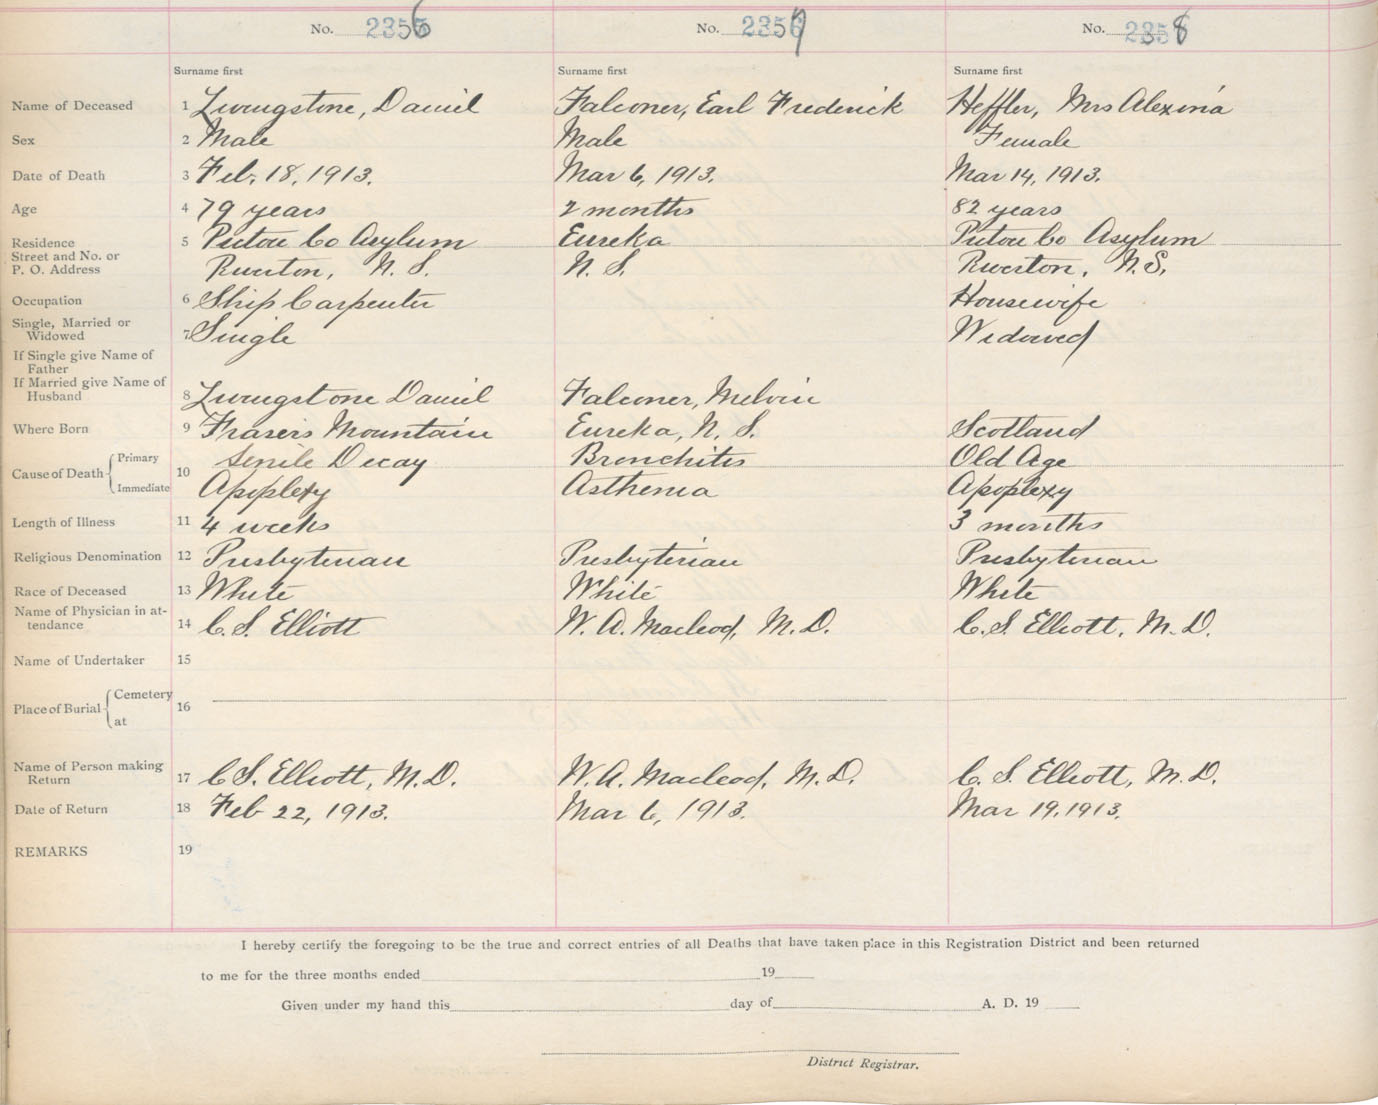 No. 2356 No. 2357 No. 2358
Surname first Surname first Surname first
Name of Deceased 1 Livingstone, Daniel Falconer, Earl Frederick Heffler, Mrs Alexina
Sex 2 Male Male Female
Date of Death 3 Feb. 18, 1913. Mar 6, 1913. Mar 14, 1913.
Age 4 79 years 2 months 82 years
Residence 5 Pictou Co Asylum Eureka Pictou Co Asylum
Street and No. or
P. O. Address Riverton, N. S. N. S. Riverton, N. S.
Occupation 6 Ship Carpenter Housewife
Single, Married or
Widowed 7 Single Widowed
If Single give Name of
Father
If Married give Name of
Husband 8 Livingstone Daniel Falconer, Melvin
Where Born 9 Frasers Mountain Eureka, N. S. Scotland
Cause of Death Primary 10 Senile Decay Bronchitis Old Age
Immediate Apoplexy Asthenia Apoplexy
Length of Illness 11 4 weeks 3 months
Religious Denomination 12 Presbyterian Presbyterian Presbyterian
Race of Deceased 13 White White White
Name of Physician in at-
tendance 14 C. S. Elliott W. A. Macleod, M. D. C. S. Elliott, M. D.
Name of Undertaker 15
Place of Burial Cemetery 16
at
Name of Person making
Return 17 C S. Elliott, M. D. W. A. Macleod, M. D. C. S. Elliott, M. D.
Date of Return 18 Feb 22, 1913. Mar 6, 1913. Mar 19, 1913.
REMARKS 19
I hereby certify the foregoing to be the true and correct entries of all Deaths that have taken place in this Registration District and been returned
to me for the three months ended 19
Given under my hand this day of A. D. 19
District Registrar.